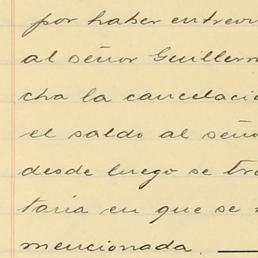 por haber entrev
al señor Guillerm
cha la cancelació
el saldo al seño
desde luego se tra
taria en que se
mencionada.